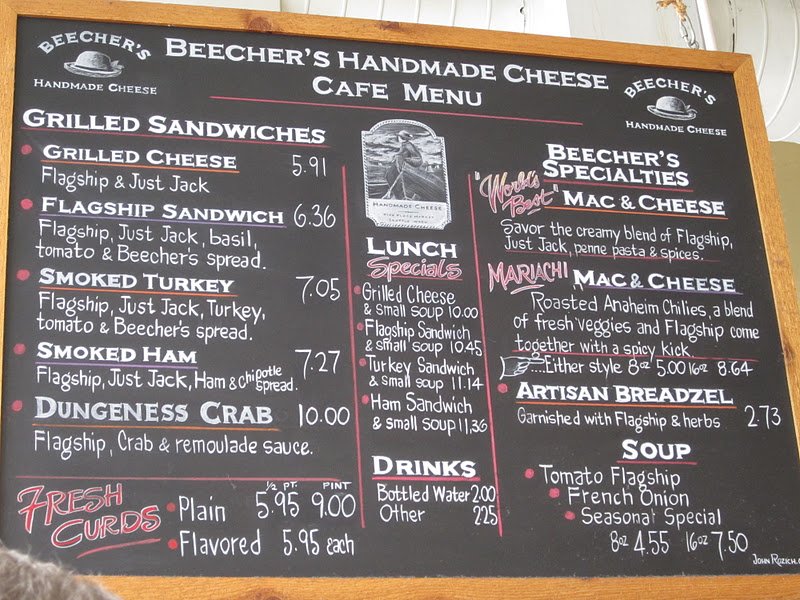 BEECHER'S
HANDMADE CHEESE
BEECHER'S HANDMADE CHEESE
CAFE MENU
BEECHER'S
HANDMADE CHEESE
GRILLED SANDWICHES
GRILLED CHEESE 5.91
Flagship & Just Jack
FLAGSHIP SANDWICH 6.36
Flagship, Just Jack, basil,
tomato & Beecher's spread.
SMOKED TURKEY 7.05
Flagship, Just Jack, Turkey,
tomato & Beecher's spread.
SMOKED HAM 7.27
Flagship, Just Jack, Ham & Chipotle
spread.
DUNGENESS CRAB 10.00
Flagship, Crab & remoulade sauce.
FRESH
CURDS
1/2 PT. PINT
Plain 5.95 9.00
Flavored 5.95 each
HANDMADE CHEESE
PIKE PLACE MARKET
LUNCH
Specials
Grilled Cheese
& small soup 10.00
Flagship Sandwich
& small soup 10.45
Turkey Sandwich
& small soup 11.14
Ham Sandwich
& small soup 11.36
DRINKS
Bottled Water 2.00
Other 2.25
BEECHER'S
SPECIALTIES
"World's
Best" MAC & CHEESE
Savor the creamy blend of Flagship,
Just Jack, penne pasta & spices.
MARIACHI MAC & CHEESE
Roasted Anaheim Chilies, a blend
of fresh veggies and Flagship come
together with a spicy kick
....Either style 8oz 5.00 16oz 8.64
ARTISAN BREADZEL
Garnished with Flagship & herbs 2.73
SOUP
Tomato Flagship
French Onion
Seasonal Special
8oz 4.55 16oz 7.50